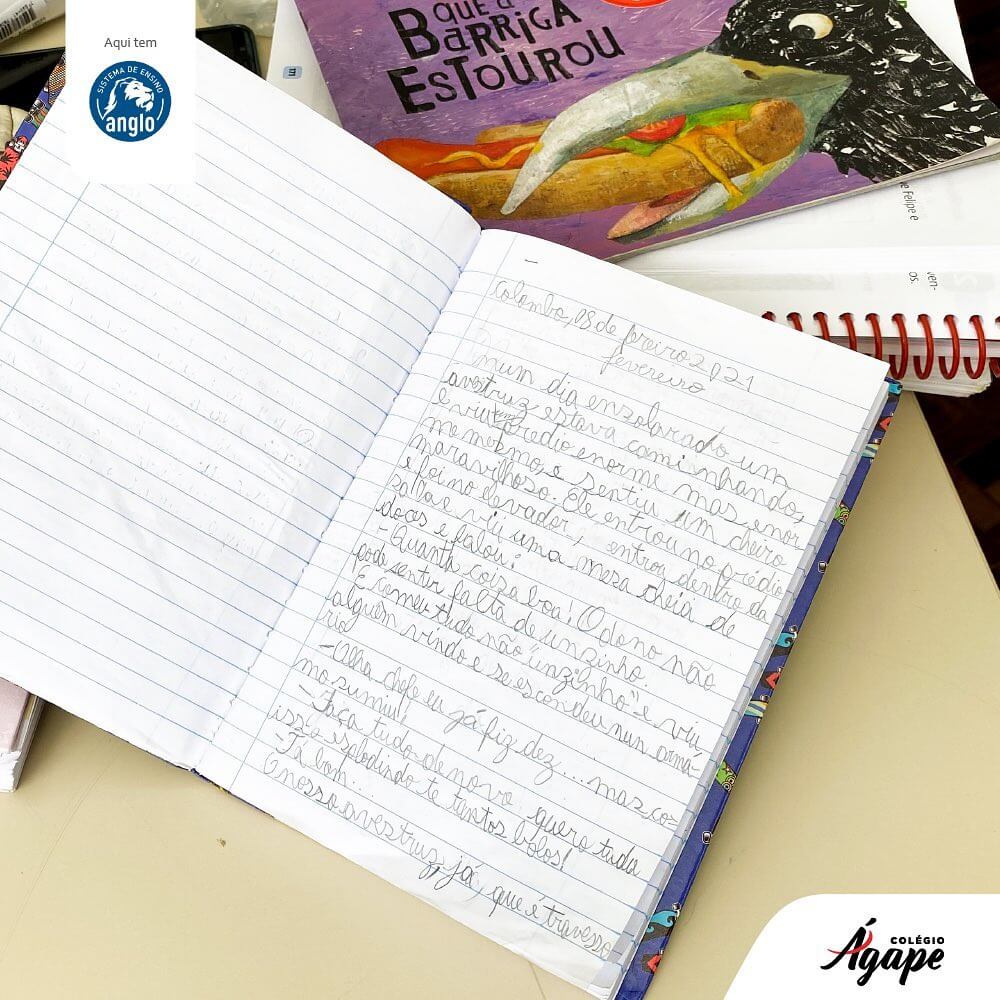 Aqui tem
SISTEMA DE ENSINO
anglo
QUE A
BARRIGA
ESTOUROU
e Felipe e
ven-
os.
Colombo, 08 de fereiro 2021
fevereiro
num dia ensolarado um
avestruz estava caminhando,
e viu um prédio enorme mas, enor
me mesmo, e sentiu um cheiro
maravilhoso. Ele entrou no prédio
e foi no elevador, entrou dentro da
salla e viu uma mesa cheia de
doces e falou:
- Quanta coiza boa! O dono não
pode sentir falta de unzinho.
E comeu tudo não "unzinho" e viu
alguém vindo e se escondeu nun armá-
rio
- Olha chefe eu já fiz dez.... mas co-
mo sumiu!
- Faça tudo de novo quero tuda
isso esplodindo te tantos bolos!
- Tá bom..
O nosso avestruz, já, que é travesso
COLÉGIO
Ágape